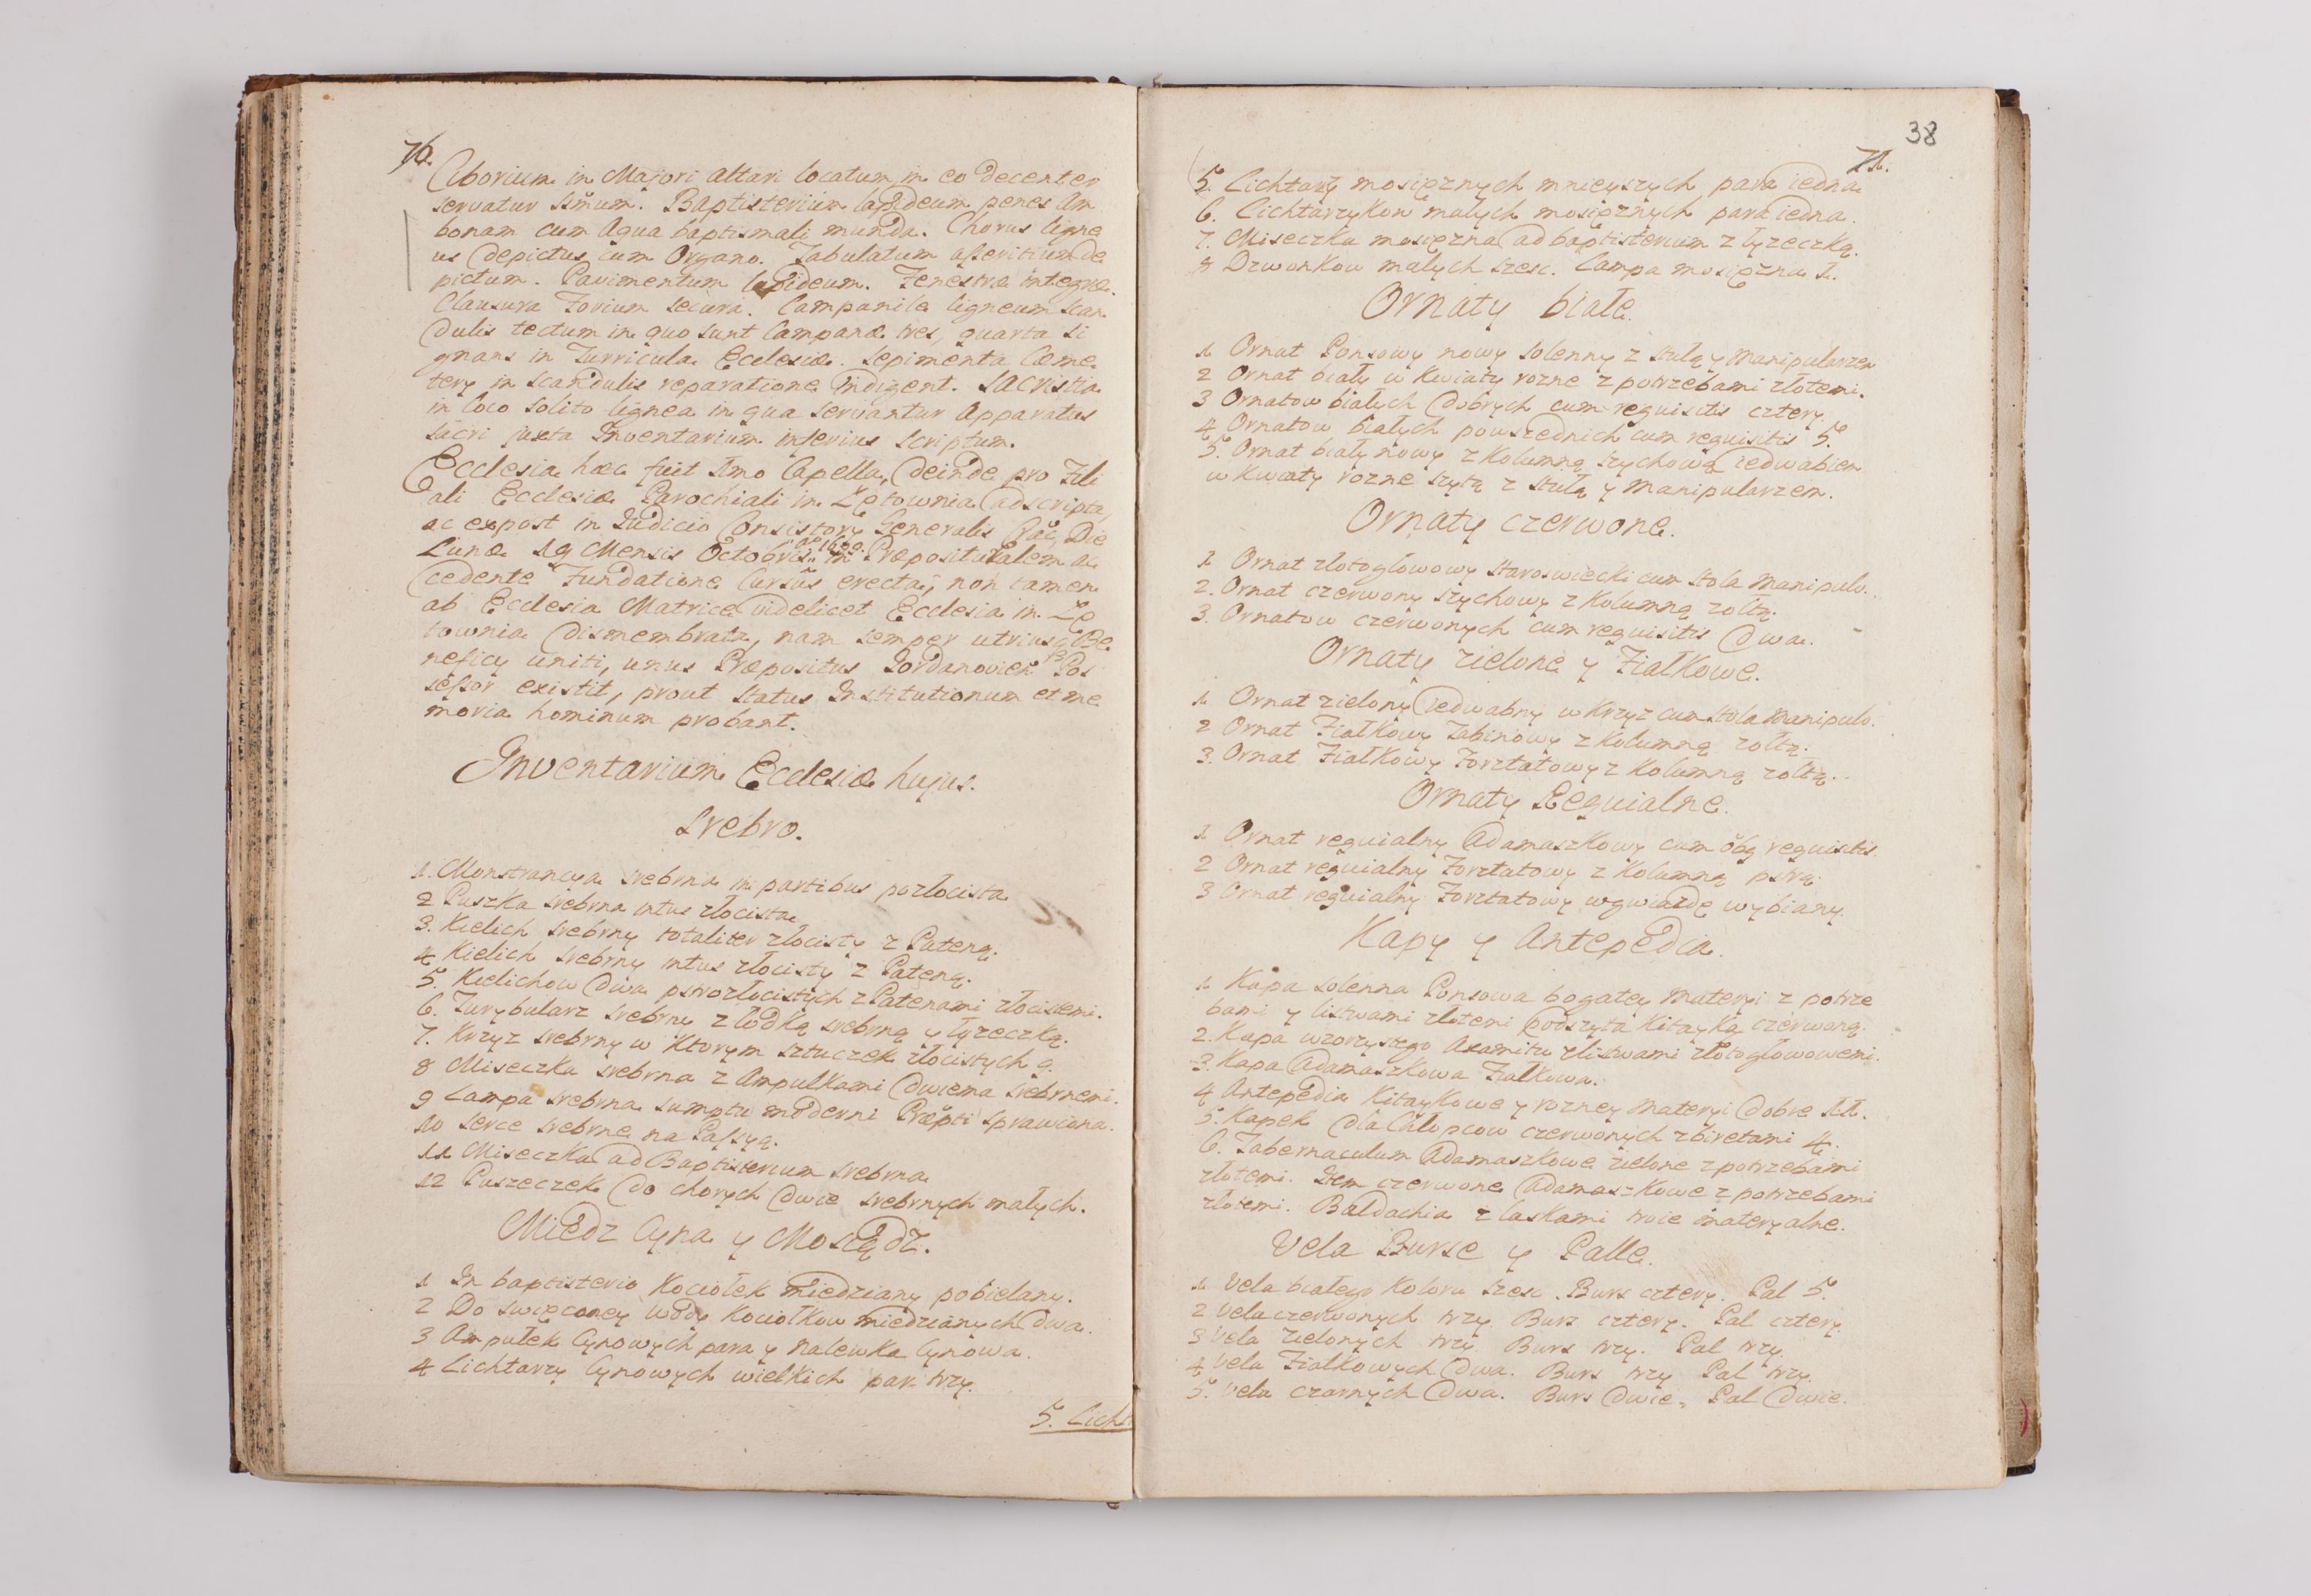 70.
Ciborium in Majori Altari locatum, in eo decenter
servatur Smum. Baptisterium lapideum penes Am
bonam cum Aqua baptismali munda. Chorus ligne
us depictus cum Organo. Tabulatum asseritium de
pictum. Pavimentum lapideum. Fenestræ integræ.
Clausura Forium secura. Campanile ligneum scan
dulis tectum in quo sunt Campanæ tres, quarta si
gnans in Turricula Ecclesiæ. Sepimenta Cæme
tery in scandulis reparatione indigent. Sacristia
in loco solito lignea in qua servantur Apparatus
sacri juxta Inventarium inferius scriptum.
Ecclesia hæc fuit 1mo Capella, deinde pro Fili
ali Ecclesiæ Parochiali in Łętownia adscripta,
ac expost in Judicio Consistory Generalis Die
Lunæ 19 Mensis Octobris in Præpositutalem ac
cedente Fundatione erecta, non tamen
ab Ecclesia Matrice videlicet Ecclesia in Łę
townia dismembrata, nam semper utriusq Be
neficy uniti, unus Præpositus Jordanovien Pos
sessor existit, prout status Institutionum et me
moria hominum probant.
Inventarium Ecclesiæ hujus.
Srebro.
1. Monstrancya srebrna in partibus pozłocista
2 Puszka srebrna intus złocista
3. Kielich srebrny totaliter złocisty z Pateną.
4 Kielich srebrny intus złocisty z Pateną.
5. Kielichow dwa pstrozłocistych z Patenami złocistemi.
6. Turybularz srebrny z łodką srebrną y łyżeczką.
7. Krzyz srebrny w ktorym sztuczek złocistych 9.
8 Miseczka srebrna z Ampułkami dwiema srebrnemi.
9 Lampa srebrna sumptu moderni Præpti sprawiona.
10 Serce srebrne na Passyą.
11 Miseczka ad Baptisterium srebrna
12 Puszeczek do chorych dwie srebrnych małych.
Miedz Cyna y Mosiądz.
1 In baptisterio Kociołek miedziany pobielany.
2 Do swięconey wody Kociołkow miedzianych dwa.
3 Ampułek Cynowych para y nalewka Cynowa.
4 Lichtarzy Cynowych wielkich par trzy.
5. Licht
38
71.
5. Lichtarzy mosięznych mnieyszych para iedna
6. Lichtarzykow małych mosięznych para iedna.
7. Miseczka mosięzna ad baptisterium z łyzeczką.
8 Dzwonkow małych szesc. Lampa mosięzna 1.
Ornaty białe.
1 Ornat Ponsowy nowy solenny z stułą y manipularzem
2 Ornat biały w kwiaty rozne z potrzebami złotemi.
3 Ornatow białych dobrych cum requisitis cztery.
4 Ornatow białych powszednich cum requisitis 5.
5. Ornat biały nowy z Kolumną sztychową iedwabiem
w kwiaty rozne szytą z stułą y manipularzem.
Ornaty czerwone.
1 Ornat złotogłowowy staroswiecki cum stola manipulo.
2. Ornat czerwony sztychowy z Kolumną zołtą.
3. Ornatow czerwonych cum requisitis dwa.
Ornaty zielone y Fiałkowe.
1 Ornat zielony iedwabny w Krzyz cum stola manipulo.
2 Ornat Fiałkowy Tabinowy z Kolumną zołtą.
3. Ornat Fiałkowy Forztatowy z Kolumną zołtą.
Ornaty Requialne.
1 Ornat requialny Adamaszkowy cum oibq requisitis.
2 Ornat requialny Forztatowy z Kolumną pstrą.
3 Ornat requialny Forztatowy w gwiazdę wybiany.
Kapy y Antepedia.
1 Kapa solenna Ponsowa bogatey materyi z potrze
bami y listwami złotemi podszyta kitayką czerwoną.
2. Kapa wzorzystego Axamitu z listwami złotogłowowemi.
3. Kapa Adamaszkowa Fiałkowa.
4 Antepedia Kitaykowe y rozney materyi dobre 11.
5. Kapek dla Chłopcow czerwonych z biretami 4.
6. Tabernaculum Adamaszkowe zielone z potrzebami
złotemi. Item czerwone Adamaszkowe z potrzebami
złotemi. Baldachia z laskami troie materyalne.
Vela Burse y Palle.
1 Vela białego koloru szesc. Burs cztery. Pal 5.
2 Vela czerwonych trzy. Burs cztery. Pal cztery.
3 Vela zielonych trzy Burs trzy. Pal trzy.
4 Vela Fiałkowych dwa. Burs trzy Pal trzy.
5. Vela czarnych dwa. Burs dwie. Pal dwie.